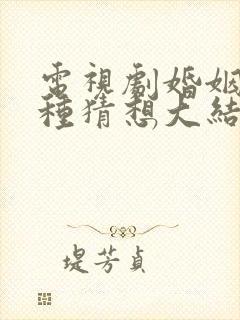 電視劇婚姻
種猜想大結
堤芳貞